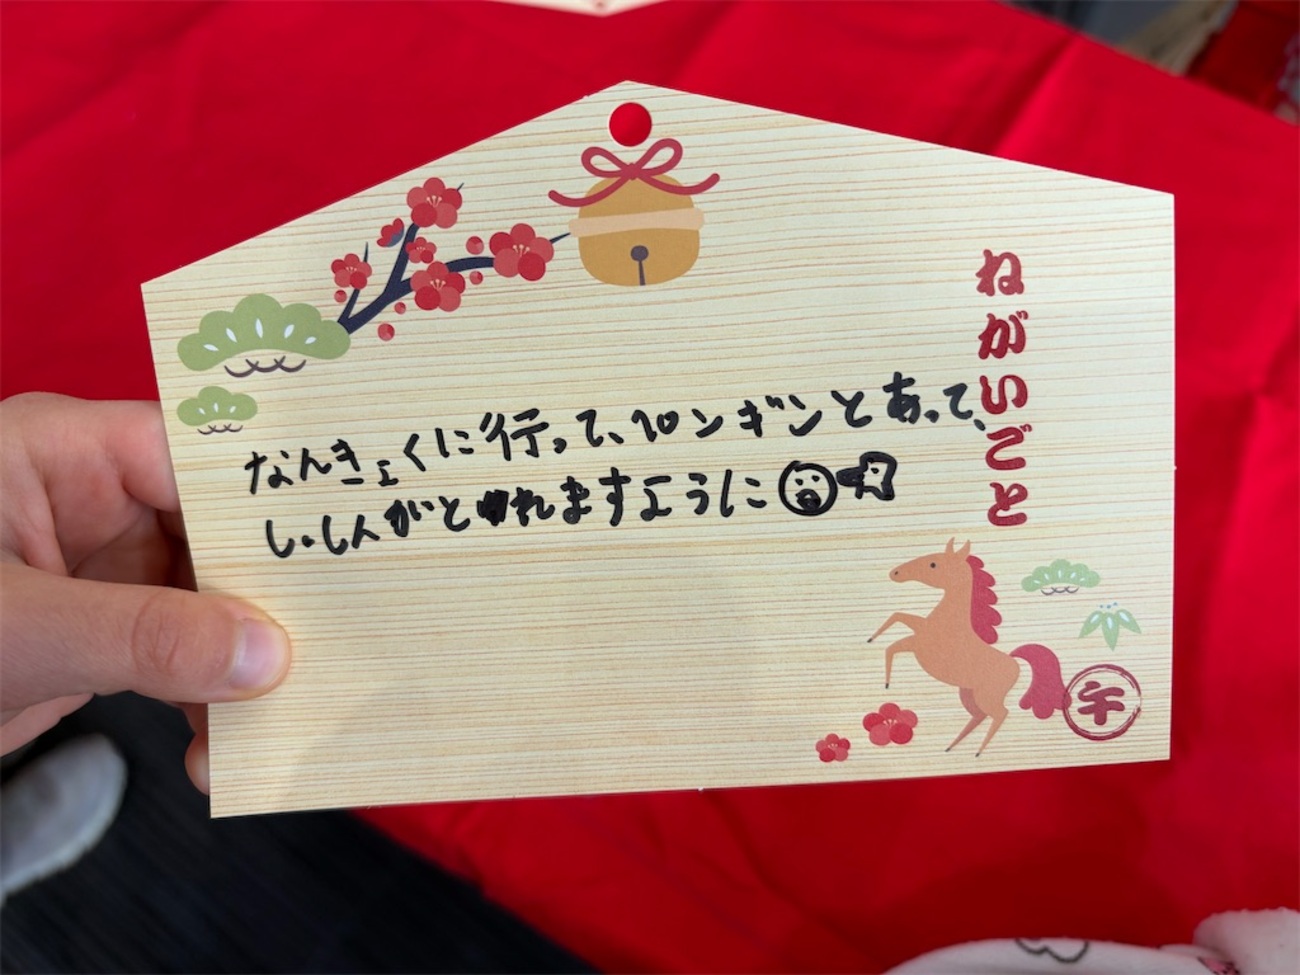 ねがいごと
なんきょくに行って、ペンギンとあって、
しゃしんがとれますように
午